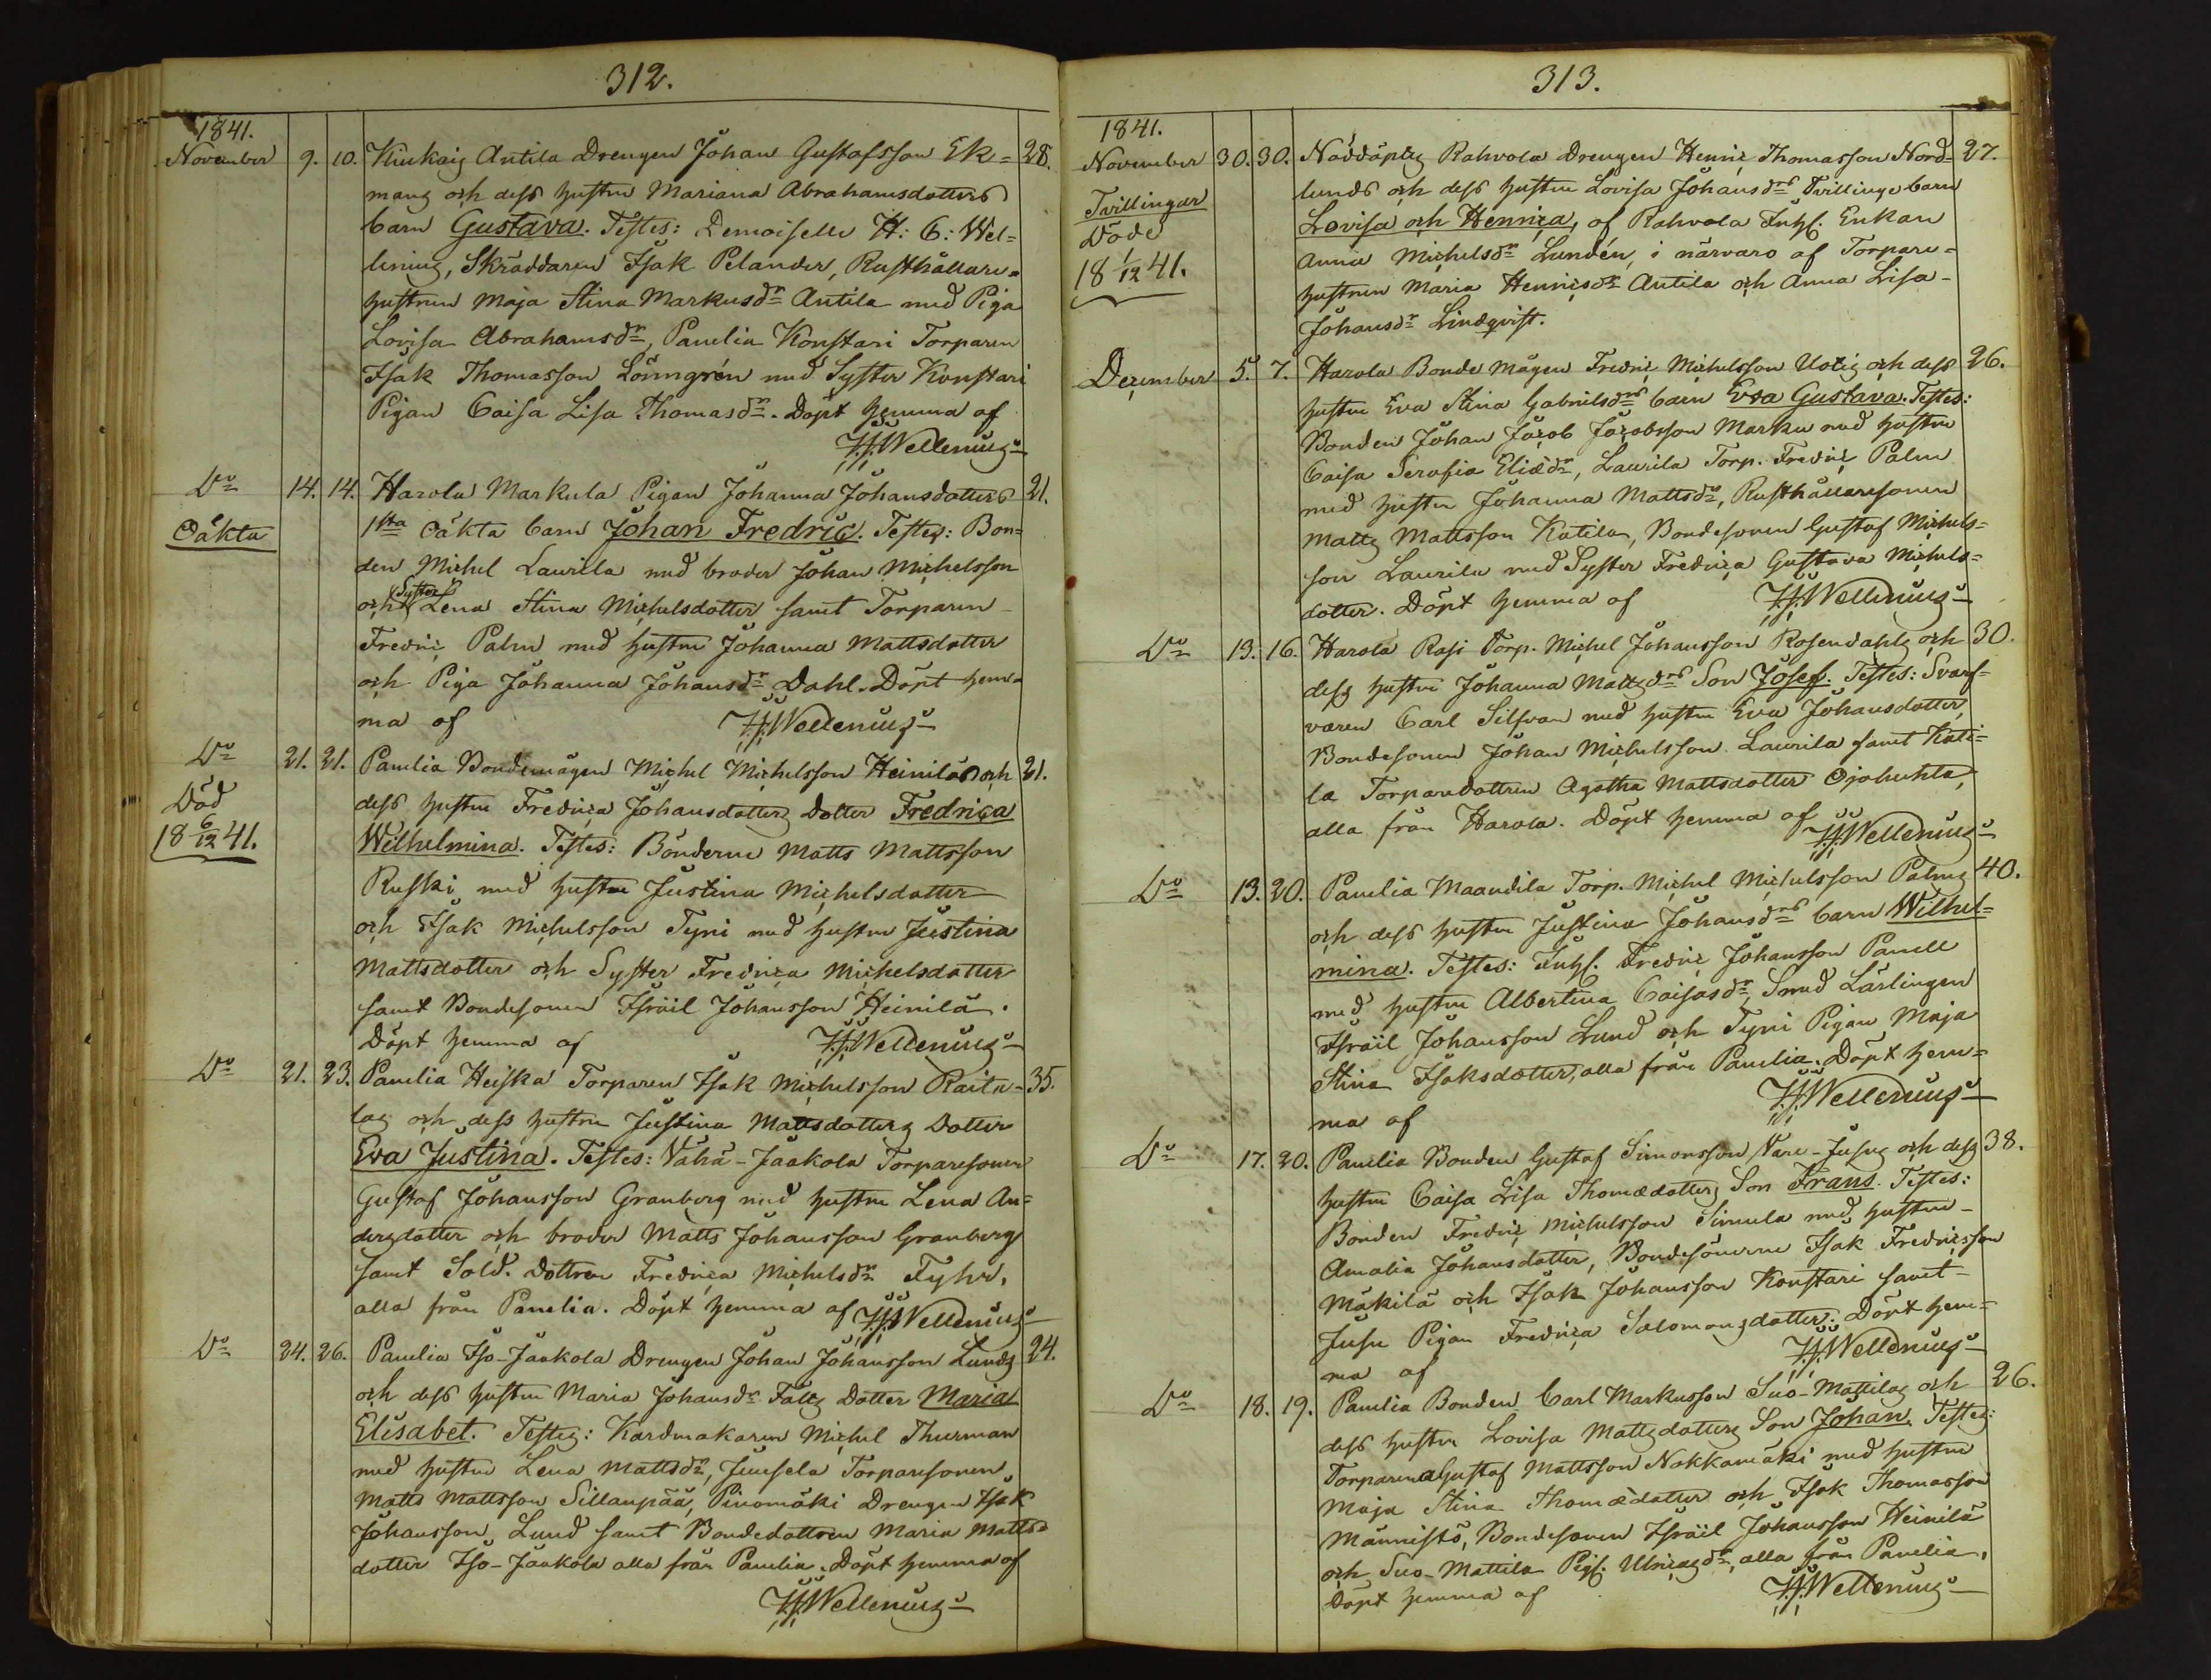 312.
1841.
November 9. 10. Kiukais Antila Drengen Johan Gustafsson Ek= 28.
mans och dess hustru Mariana Abrahamsdotters
barn Gustava. Testes: Demoiselle H: C: Wel=
lenius, Skräddaren Isak Pelander, Rusthållare=
hustrun Maja Stina Markusdr Antila med Piga
Lovisa Abrahamsdr, Panelia Konstari Torparen
Isak Thomasson Lönngrén med Syster Konstari
Pigan Caisa Lisa Thomasdr. Döpt hemma af
Wellenius
Do 14. 14. Harola Markula Pigan Johanna Johansdotters 21.
Oäkta
1sta oäkta barn Johan Fredric. Testes: Bon=
den Michel Laurila med broder Johan Michelsson
och Syster Lena Stina Michelsdotter samt Torparen
Fredric Palm med hustru Johanna Mattsdotter
och Piga Johanna Johansdr Dahl. Döpt hem=
ma af Wellenius
Do 21. 21. Panelia Bondemågen Michel Michelsson Heiniläs och 21.
Död
18 6/12 41.
dess hustru Fredrica Johansdotters Dotter Fredrica
Wilhelmina. Testes: Bönderne Matts Mattsson
Ruski med hustru Justina Michelsdotter
och Isak Michelsson Tyni med hustru Justina
Mattsdotter och Syster Fredrica Michelsdotter
samt Bondesonen Israil Johansson Heinilä.
Döpt hemma af Wellenius
Do 21. 23. Panelia Heiska Torparen Isak Michelsson Raita= 35.
las och dess hustru Justina Mattsdotters Dotter
Eva Justina. Testes: Vähä-Jaakola Torparesonen
Gustaf Johansson Granberg med hustru Lena An=
dersdotter och broder Matts Johansson Granberg
samt Sold. dottren Fredrica Michelsdr Fyhr,
alla från Panelia. Döpt hemma af Wellenius
Do 24. 26. Panelia Iso-Jaakola Drengen Johan Johansson Lunds 24.
och dess hustru Maria Johansdr Fälts Dotter Maria
Elisabet. Testes: Kardmakaren Michel Thurman
med hustru Lena Mattsdr, Juusela Torparesonen
Matts Mattsson Sillanpää, Pinomäki Drengen Isak
Johansson Lund samt Bondedottren Maria Matts=
dotter Iso-Jaakola alla från Panelia. Döpt hemma af
Wellenius
313.
1841.
November 30. 30. Nöddöptes Rahvola Drengen Henric Thomasson Nord= 27.
Tvillingar
Döde
18 1/12 41.
lunds och dess hustru Lovisa Johansdrs Tvillinge barn
Lovisa och Henrica, af Rahvola Inhs. Enkan
Anna Michelsdr Lundén, i närvaro af Torpare=
hustrun Maria Henricsdr Antila och Anna Lisa
Johansdr Lindqvist.
December 5. 7. Harola Bonde mågen Fredric Michelsson Uotis och dess 26.
hustru Eva Stina Gabrielsdrs barn Eva Gustava. Testes:
Bonden Johan Jacob Jacobsson Marku med hustru
Caisa Serafia Eliædr, Laurila Torp. Fredric Palm
med hustru Johanna Mattsdr, Rusthållaresonen
Matts Mattsson Katila, Bondesonen Gustaf Michels=
son Laurila med Syster Fredrica Gustava Michels=
dotter. Döpt hemma af Wellenius
Do 13. 16. Harola Rasi Torp. Michel Johansson Rosendahls och 30.
dess hustru Johanna Mattsdrs Son Josef. Testes: Svarf=
varen Carl Silfvan med hustru Eva Johansdotter,
Bondesonen Johan Michelsson Laurila samt Kati=
la Torparedottren Agatha Mattsdotter Ojahuhta,
alla från Harola. Döpt hemma af Wellenius
Do 13. 20. Panelia Maandila Torp. Michel Michelsson Palms 40.
och dess hustru Justina Johansdrs barn Wilhel=
mina. Testes: Inhs. Fredric Johansson Panell
med hustru Albertina Caisasdr, Smed Lärlingen
Israil Johansson Lund och Tyni Pigan Maja
Stina Isaksdotter, alla från Panelia. Döpt hem=
ma af Wellenius
Do 17. 20. Panelia Bonden Gustaf Simonsson Vare-Jusus och dess 38.
hustru Caisa Lisa Thomædotters Son Frans. Testes:
Bonden Fredric Michelsson Simula med hustru
Amalia Johansdotter, Bondesönerne Isak Fredricsson
Mäkilä och Isak Johansson Konstari samt
Jusu Pigan Fredrica Salomonsdotter: Döpt hem=
ma af Wellenius
Do 18. 19. Panelia Bonden Carl Markusson Suo-Mattilas och 26.
dess hustru Lovisa Mattsdotters Son Johan. Testes:
Torparena Gustaf Mattsson Nokkamäki med hustru
Maja Stina Thomædotter och Isak Thomasson
Männistö, Bondesonen Israil Johansson Heinilä
och Suo-Mattila Pigs. Ulricasdr, alla från Panelia.
Döpt hemma af Wellenius